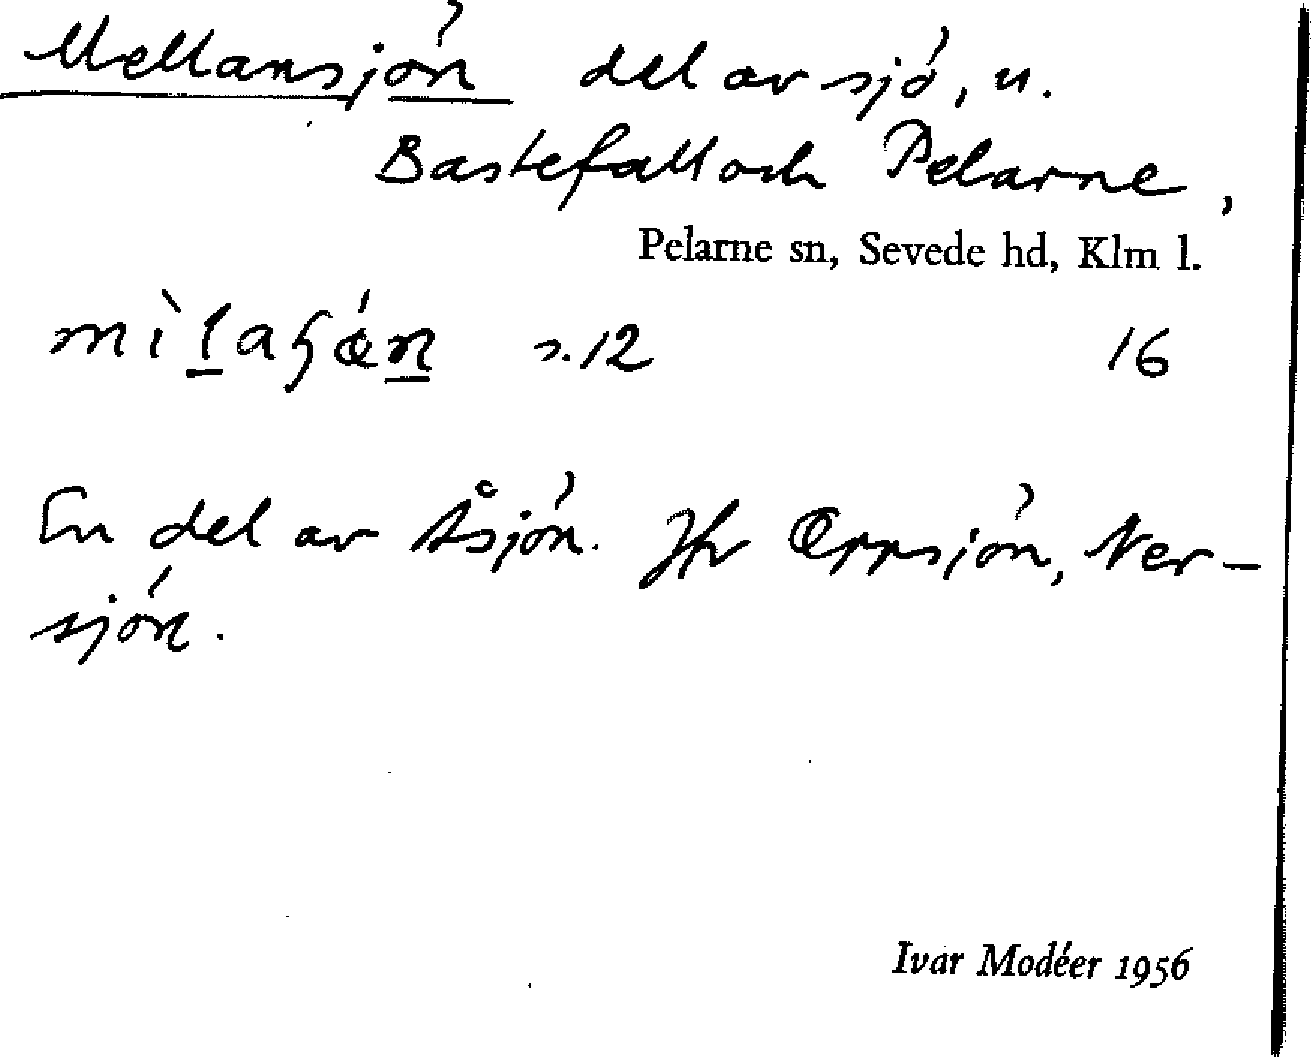 Mellansjön del av sjö, u.
Bastefall och Pelarne,
Pelarne sn, Sevede hd, Klm l.
s. 12 16
En del av Åsjön. Jfr Öppsjön, Ner-
sjön.
Ivar Modéer 1956